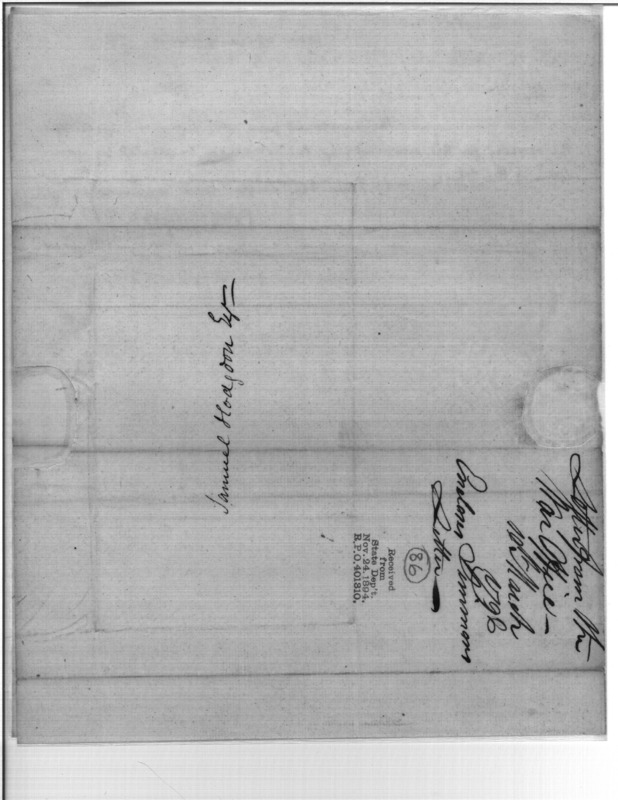 Samuel Hodgdon Esq
Letter from the
War Office
10th March
1798
Enclosing Simmons
Letter
86
Received
from
State Dep't.
Nov. 24, 1894.
R.P.O. 401810.